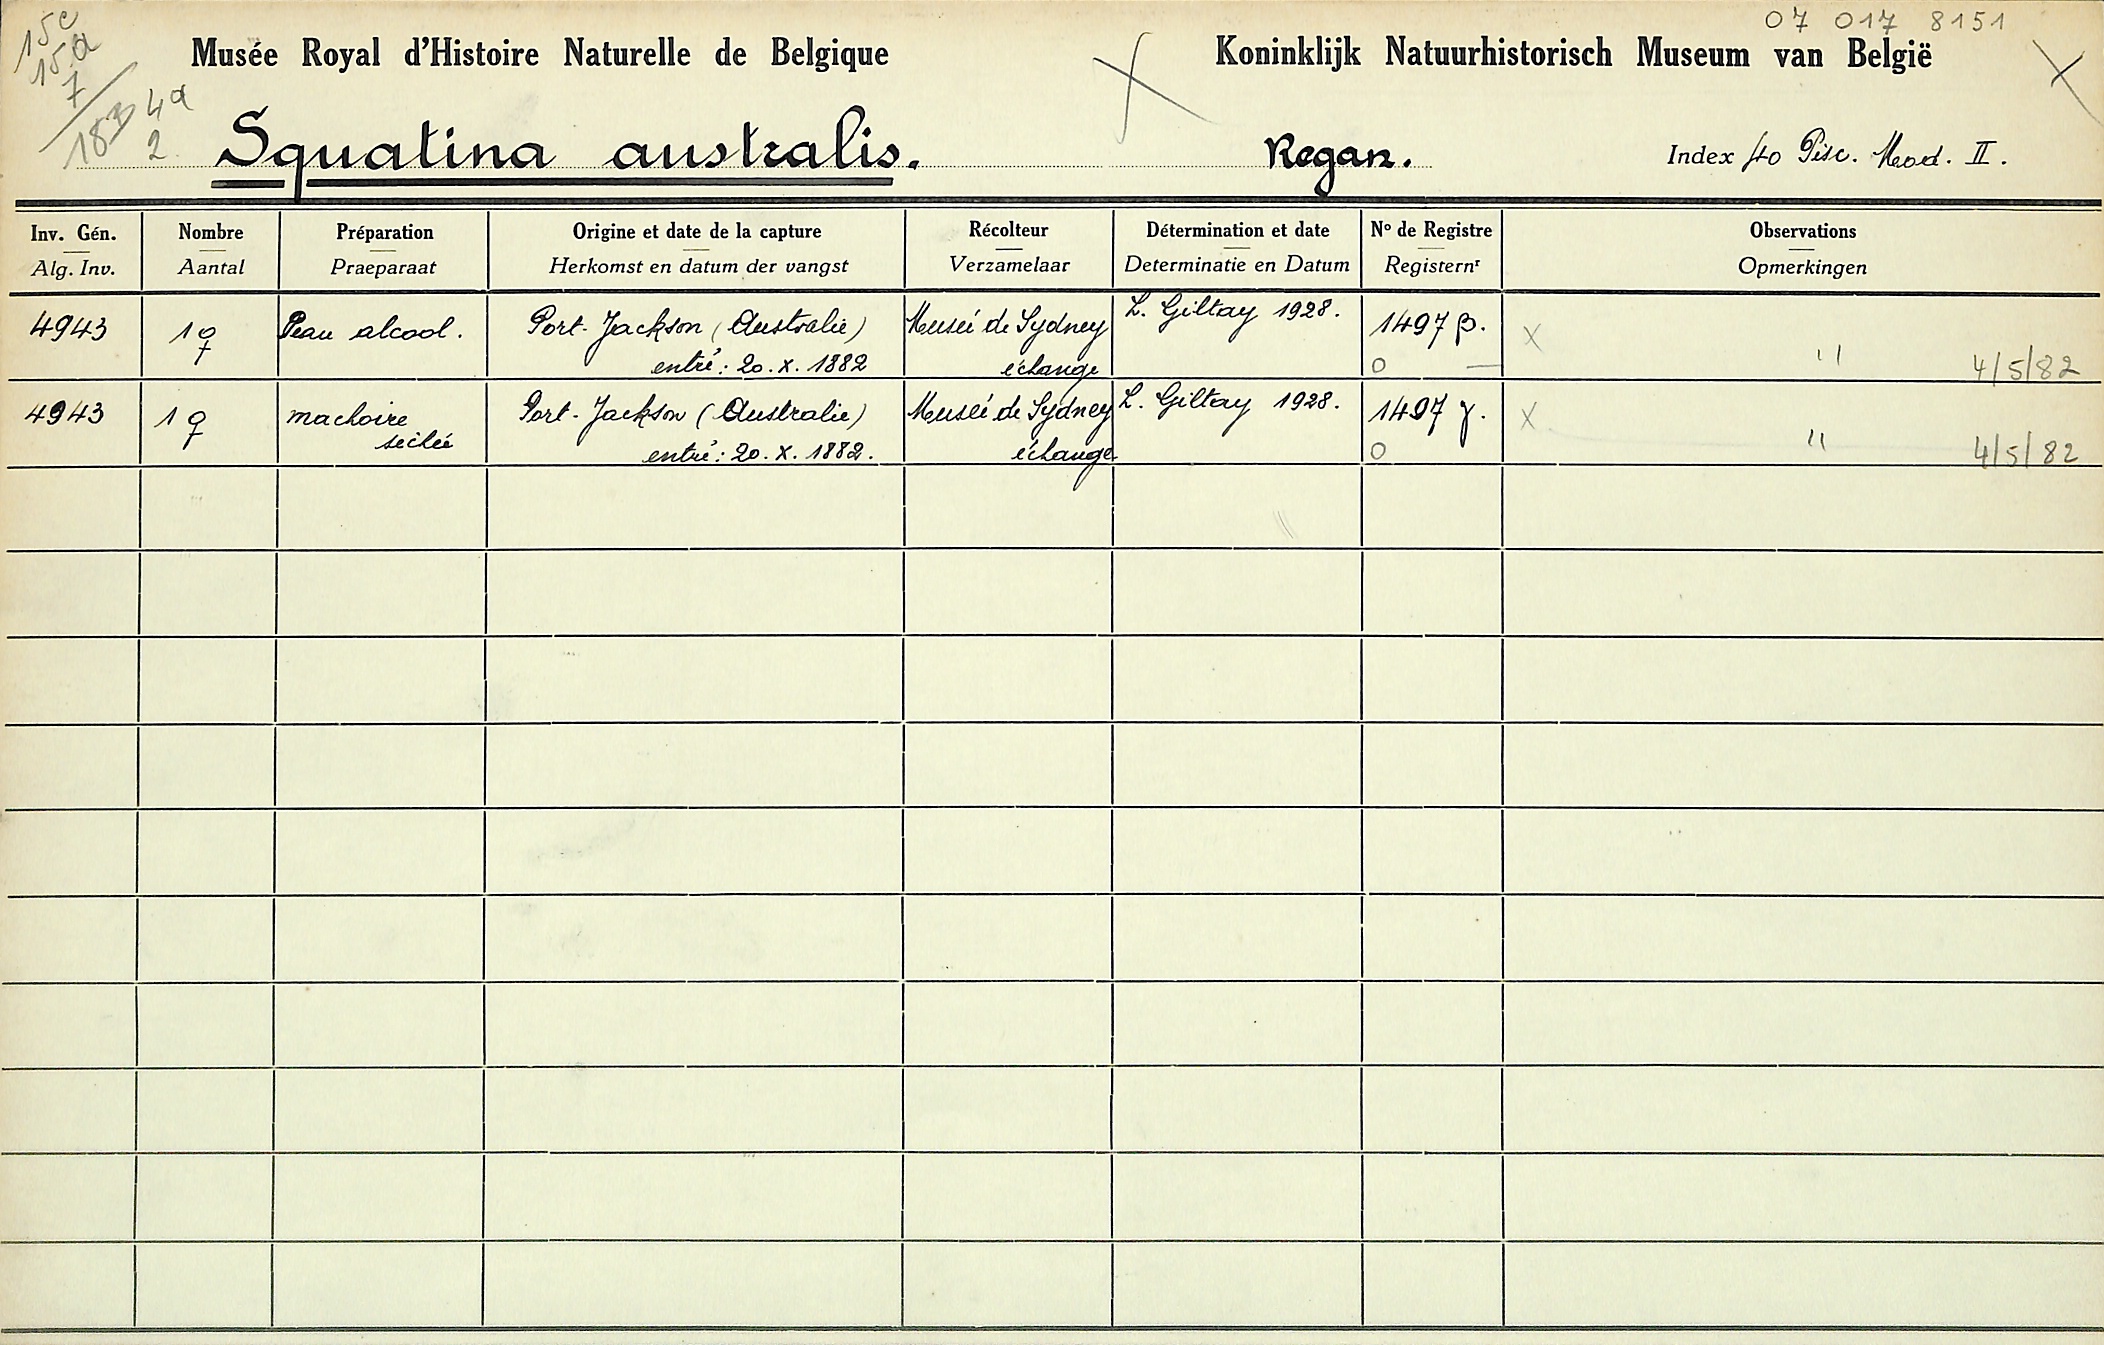 07 017 8151
15c
15a
7
18B 4a
2
Musée Royal d'Histoire Naturelle de Belgique Koninklijk Natuurhistorisch Museum van België
Squatina australis. Regan. Index f40 Pisc. Mod. II.
Inv. Gén. Nombre Préparation Origine et date de la capture Récolteur Détermination et date N° de Registre Observations
Alg. Inv. Aantal Praeparaat Herkomst en datum der vangst Verzamelaar Determinatie en Datum Registernr Opmerkingen
4943 1 ♀ Peau alcool. Port-Jackson (Australie) Musée de Sydney L. Giltay 1928. 1497 β. X
entré: 20.X.1882 échange 0 — " 4/5/82
4943 1 ♀ machoire Port-Jackson (Australie) Musée de Sydney L. Giltay 1928. 1497 γ. X
sechée entré: 20.X.1882. échange 0 " 4/5/82